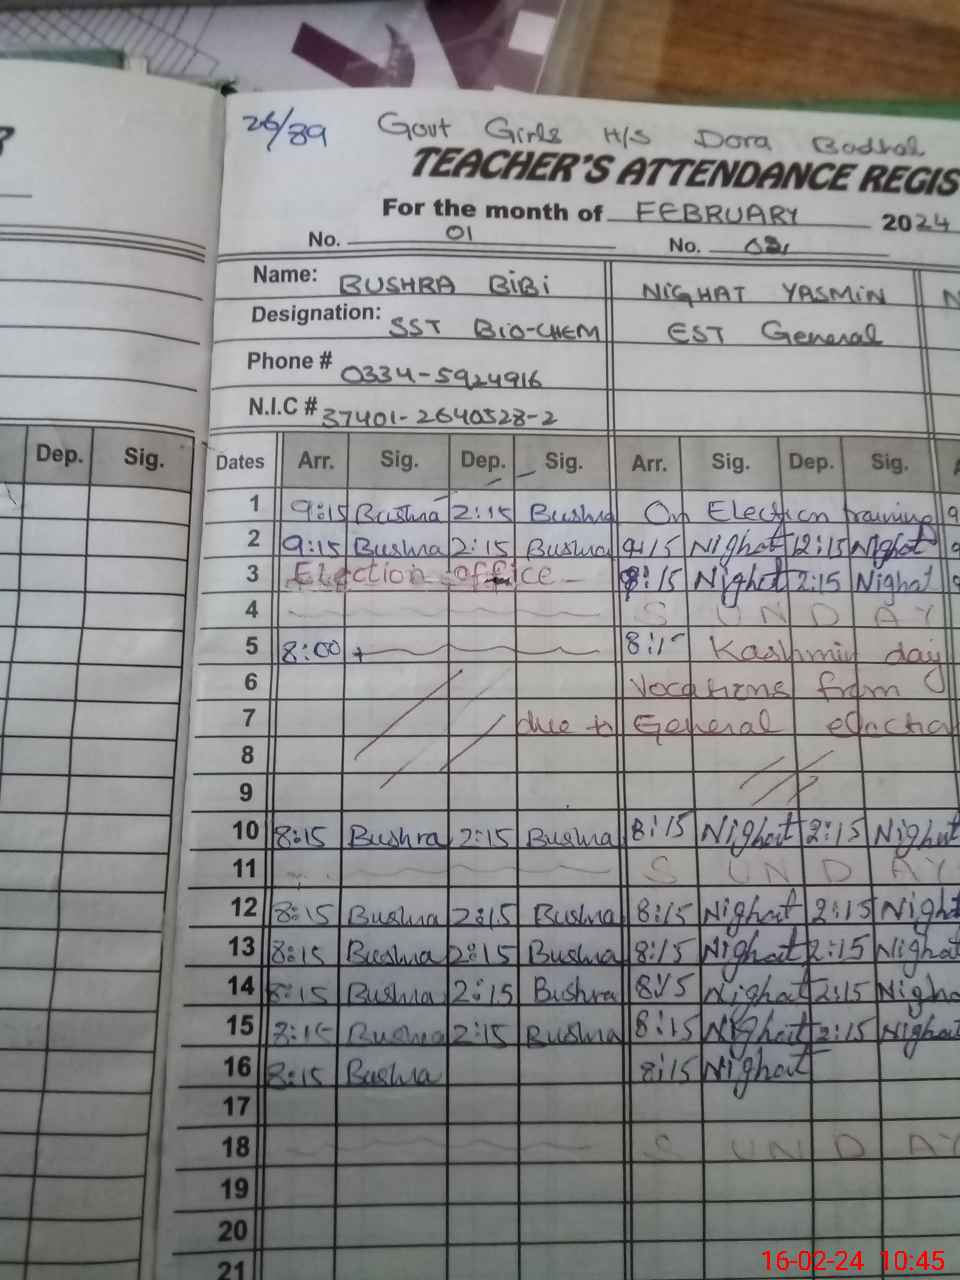 26/89 Govt Girls H/S Dora Badhal
TEACHER'S ATTENDANCE REGIS
For the month of FEBRUARY 2024
No. 01 No. 02
Name: BUSHRA BiBi NiGHAT YASMiN N
Designation: SST Bio-CHEM EST General
Phone # 0334-5924916
N.I.C # 37401-2640528-2
Dep. Sig. Dates Arr. Sig. Dep. Sig. Arr. Sig. Dep. Sig. A
1 9:15 Bushra 2:15 Bushra On Election training 9
2 9:15 Bushra 2:15 Bushra 9:15 Nighat 12:15 Nighat 9
3 Election office 8:15 Nighat 2:15 Nighat
4 S U N D A Y
5 8:00 8:1 Kashmir day
6 Vocations from
7 due to General
8
9
10 8:15 Bushra 2:15 Bushra 8:15 Nighat 2:15 Nighat
11 S U N D A Y
12 8:15 Bushra 2:15 Bushra 8:15 Nighat 2:15 Night
13 8:15 Bushra 2:15 Bushra 8:15 Nighat 2:15 Nighat
14 8:15 Bushra 2:15 Bushra 8:15 Nighat 2:15 Nigha
15 8:15 Bushra 2:15 Bushra 8:15 Nighat 2:15 Nighat
16 8:15 Bushra 8:15 Nighat
17
18 S U N D A Y
19
20
21
16-02-24 10:45